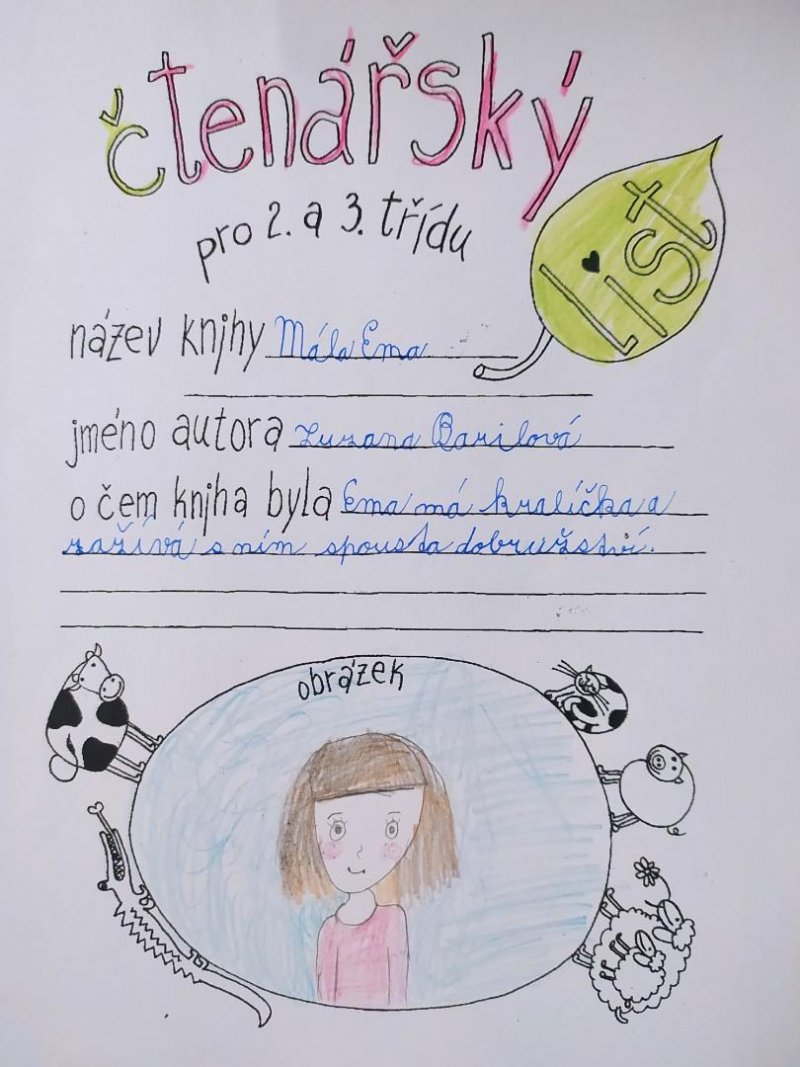 čtenářský
List
pro 2. a 3. třídu
název knihy Mála Ema
jméno autora Zuzana Barilová
o čem kniha byla Ema má kralíčka a
zažívá s ním spousta dobružství.
obrázek